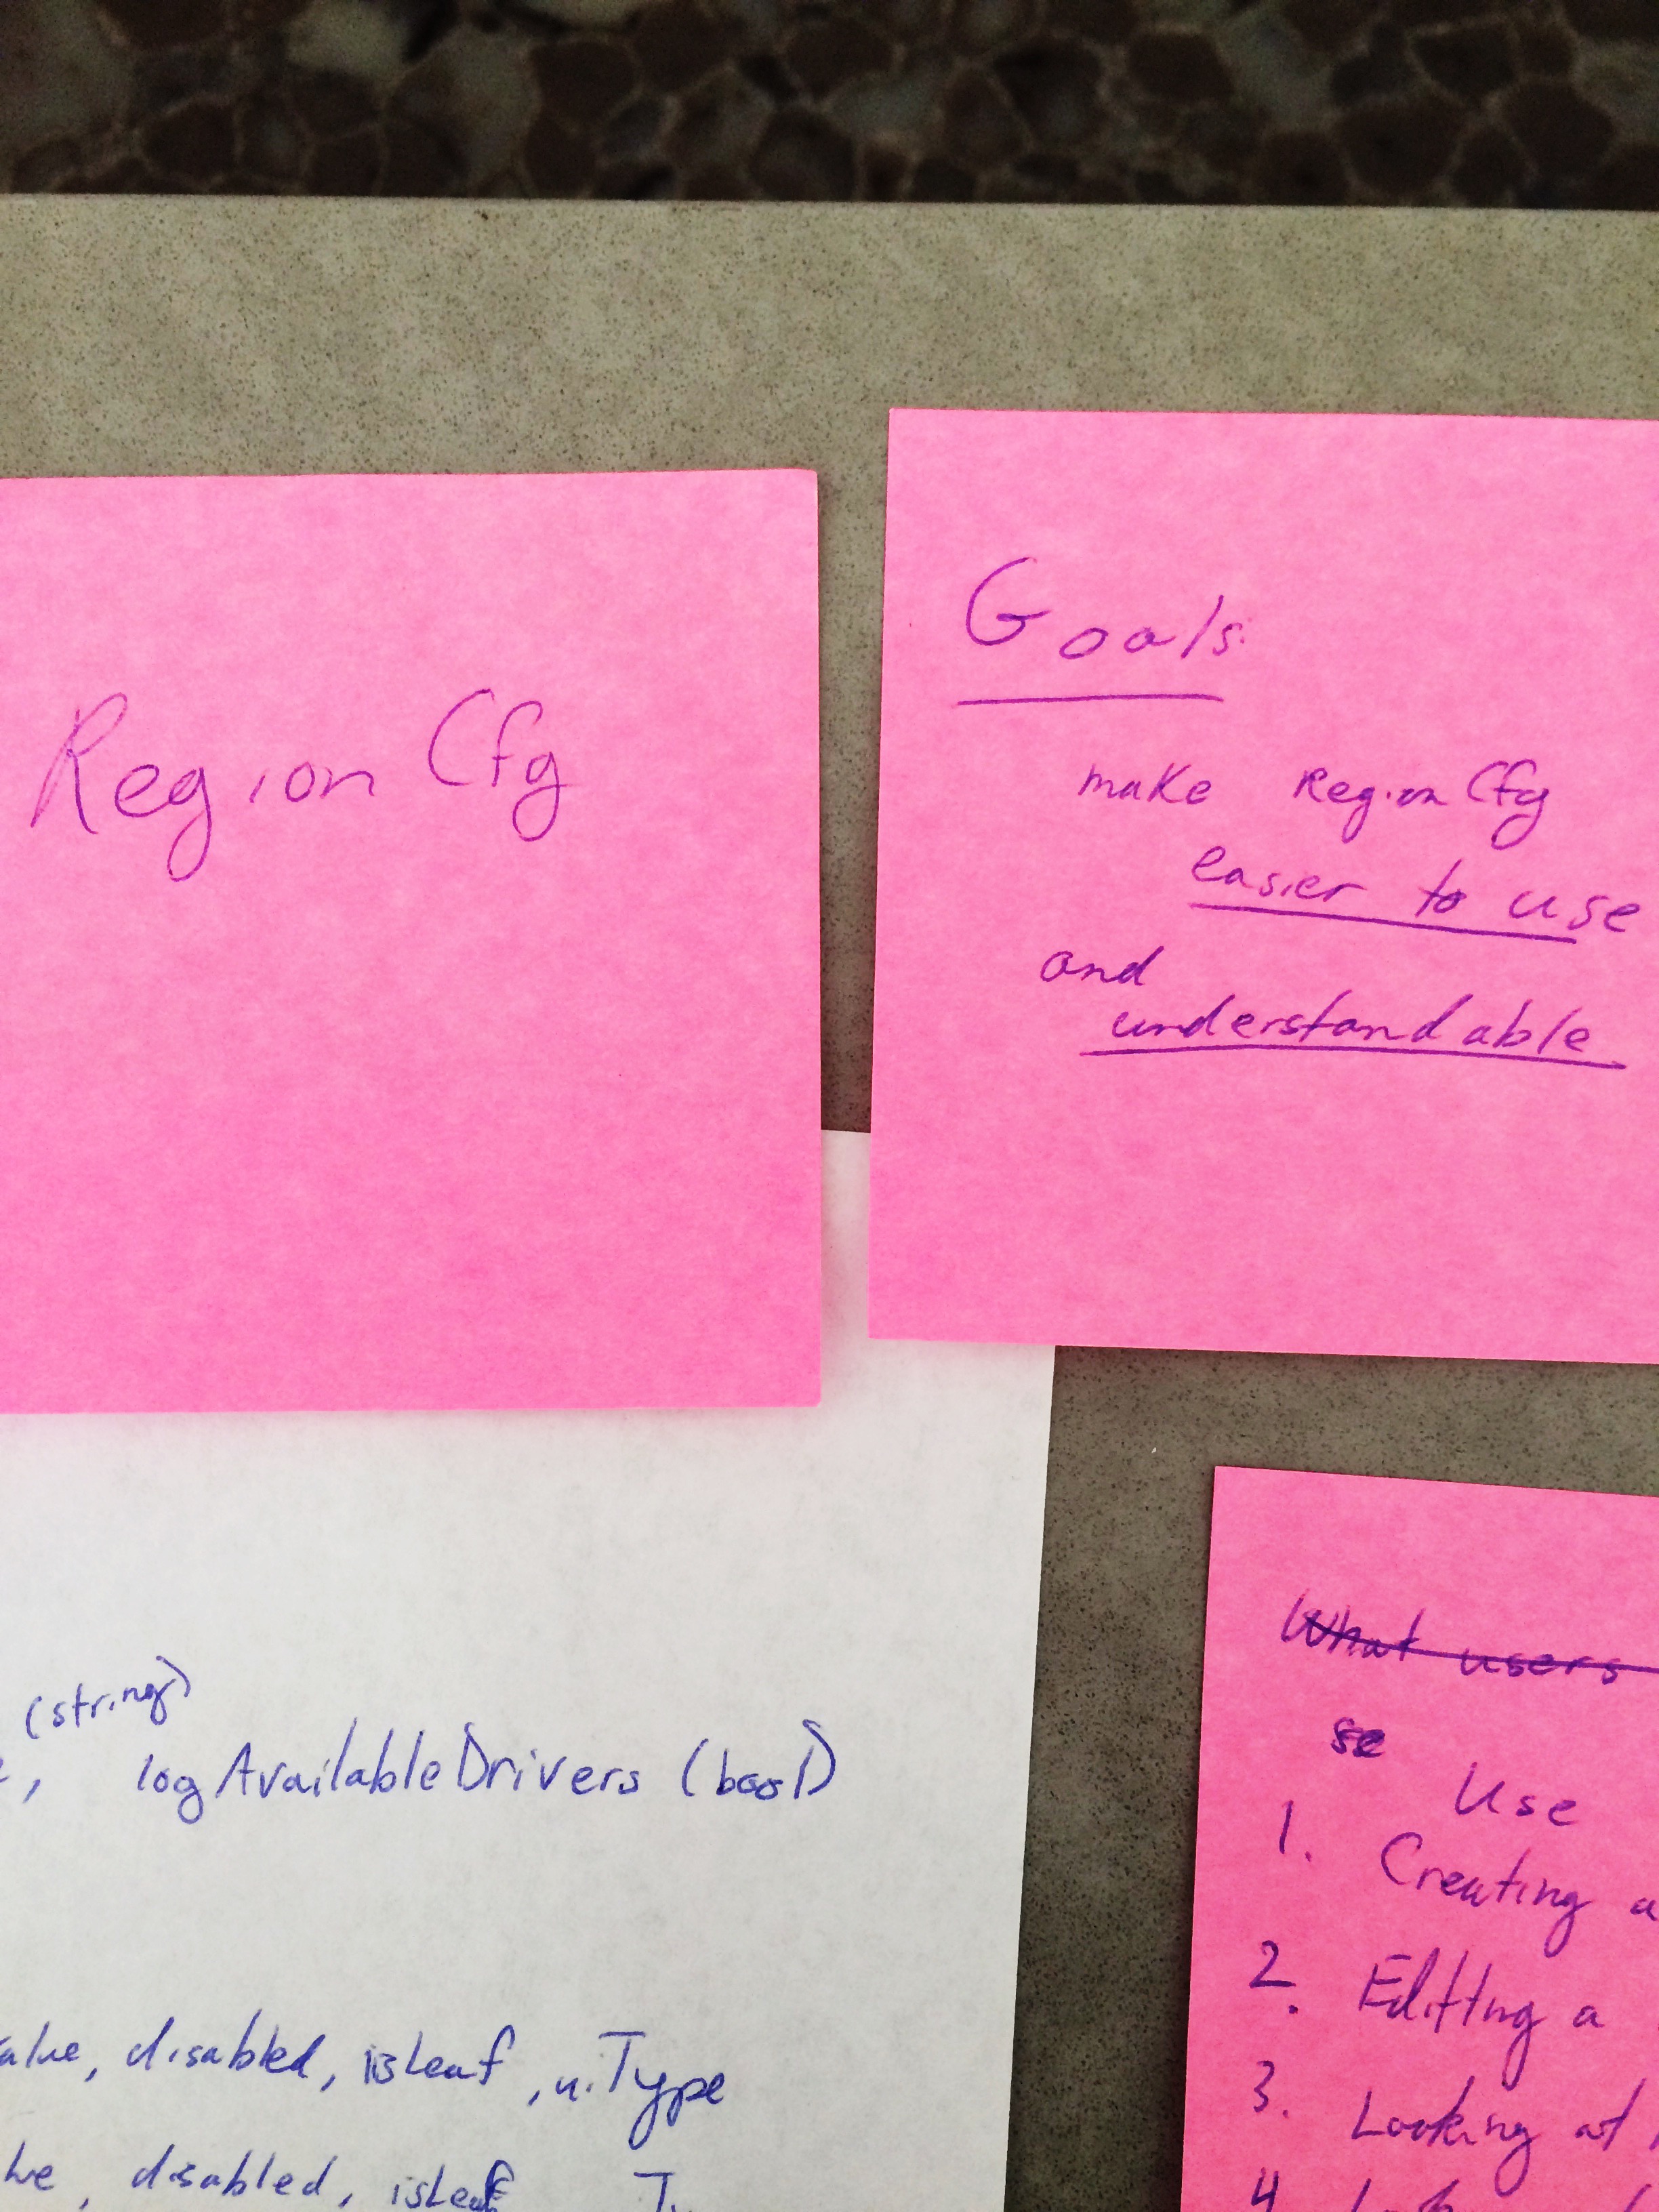 Region Cfg
Goals
make Region Cfg
easier to use
and
understandable
(string)
, logAvailableDrivers (bool)
alue, disabled, isLeaf, uiType
lue, disabled, isLeaf
What users
se
Use
1. Creating a
2. Editing a
3. Looking at
4